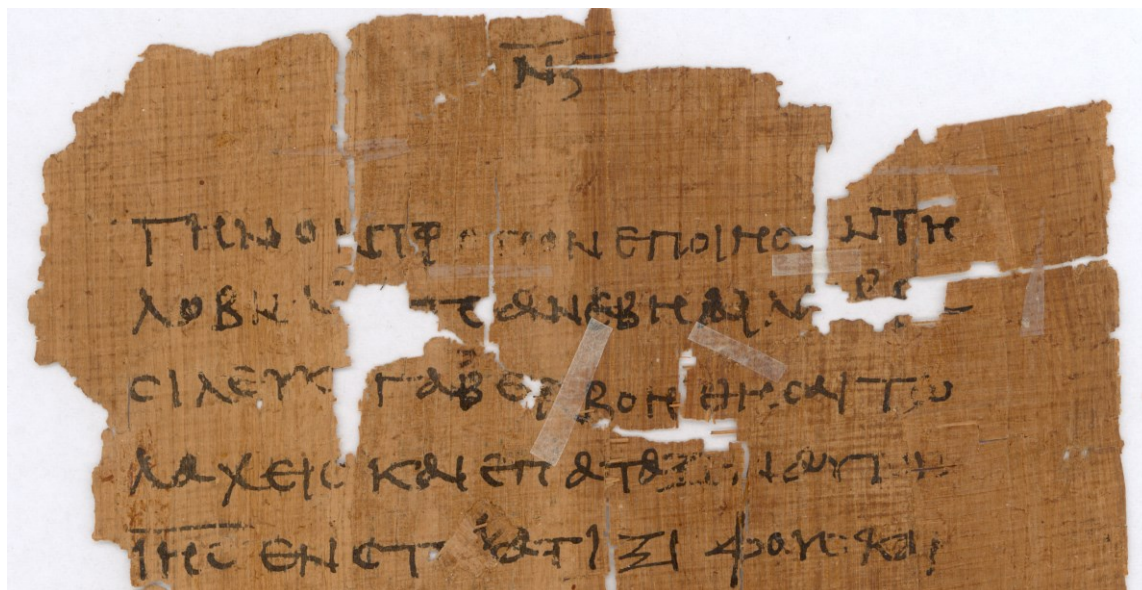 Νϛ
ΤΗΝ ΟΝ ΤΡΟΠΟΝ ΕΠΟΙΗϹΑΝ ΤΗ
ΛΟΒΝΑ ΤΕ ΑΝΕΒΗ ΑΙΛΑΜ
ϹΙΛΕΥϹ ΓΑΒΕΡ ΒΟΗΘΗϹΑΙ
ΛΑΧΕΙϹ ΚΑΙ ΕΠΑΤΑΞΕΝ ΑΥΤΟΝ
ΙΗϹ ΕΝ ϹΤΟΜΑΤΙ ΞΙΦΟΥϹ ΚΑΙ